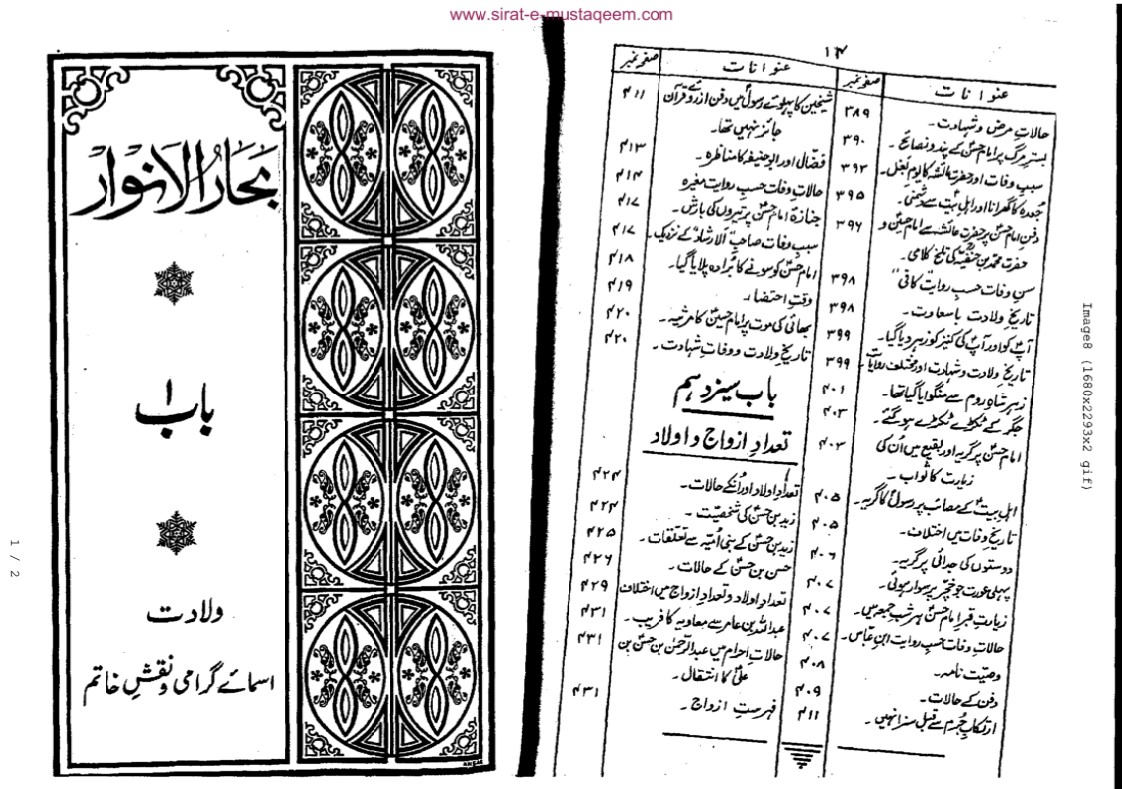 www.sirat-e-mustaqeem.com
بحار الانوار
باب ۱
ولادت
اسمائے گرامی و نقشِ خاتم
۱۴
عنوانات صفحہ نمبر
حالاتِ مرض و شہادت۔ ۳۸۹
بسترِ مرگ پر امام حسنؑ کے پند و نصائح۔ ۳۹۰
سببِ وفات اور حضرت عائشہ کا یومِ بغل۔ ۳۹۲
جُعدہ کا گھرانا اور اہلِ بیتؑ سے دشمنی۔ ۳۹۵
دفنِ امام حسنؑ پر حضرت عائشہ سے امام حسینؑ و ۳۹۶
حضرت محمد بن حنفیہؓ کی تلخ کلامی۔
سنِ وفات حسبِ روایت "کافی" ۳۹۸
تاریخِ ولادت باسعادت۔ ۳۹۸
آپؑ کو اور آپؑ کی کنیز کو زہر دیا گیا۔ ۳۹۹
تاریخِ ولادت و شہادت اور مختلف روایات ۳۹۹
زہر شاہِ روم سے منگوایا گیا تھا۔ ۴۰۱
جگر کے ٹکڑے ٹکڑے ہو گئے۔ ۴۰۳
امام حسنؑ پر گریہ اور بقیع میں اُن کی ۴۰۳
زیارت کا ثواب۔
اہلِ بیتؑ کے مصائب پر رسولؐ کا گریہ۔ ۴۰۵
تاریخِ وفات میں اختلاف۔ ۴۰۵
دوستوں کی جدائی پر گریہ۔ ۴۰۶
پہلی عورت جو خچر پر سوار ہوئی۔ ۴۰۷
زیارتِ قبرِ امام حسنؑ ہر شبِ جمعہ میں۔ ۴۰۷
حالاتِ وفات حسبِ روایت ابنِ عباس۔ ۴۰۷
وصیّت نامہ۔ ۴۰۸
دفن کے حالات۔ ۴۰۹
ارتکابِ جُرم سے قبل سزا نہیں۔ ۴۱۱
عنوانات صفحہ نمبر
شیخین کا پہلوئے رسولؐ میں دفن ازروئے قرآن ۴۱۱
جائز نہیں تھا۔
فضّال اور ابوحنیفہ کا مناظرہ۔ ۴۱۳
حالاتِ وفات حسبِ روایت مغیرہ ۴۱۴
جنازۂ امام حسنؑ پر تیروں کی بارش۔ ۴۱۷
سببِ وفات صاحبِ "الارشاد" کے نزدیک۔ ۴۱۷
امام حسنؑ کو سونے کا بُرادہ پلایا گیا۔ ۴۱۸
وقتِ احتضار ۴۱۹
بھائی کی موت پر امام حسینؑ کا مرثیہ۔ ۴۲۰
تاریخِ ولادت و وفات شہادت۔ ۴۲۰
باب سیزدہم
تعدادِ ازواج و اولاد
تعدادِ اولاد اور اُنکے حالات۔ ۴۲۴
زید بن حسنؑ کی شخصیّت۔ ۴۲۴
زید بن حسنؑ کے بنی اُمیّہ سے تعلّقات۔ ۴۲۵
حسن بن حسنؑ کے حالات۔ ۴۲۶
تعدادِ اولاد و تعدادِ ازواج میں اختلاف ۴۲۹
عبداللہ بن عامر سے معاویہ کا فریب۔ ۴۳۱
حالاتِ احرام میں عبدالرّحمٰن بن حسنؑ بن ۴۳۱
علیؑ کا انتقال۔
فہرستِ ازواج۔ ۴۳۱
Image8 (1680x2293x2 gif)
1 / 2